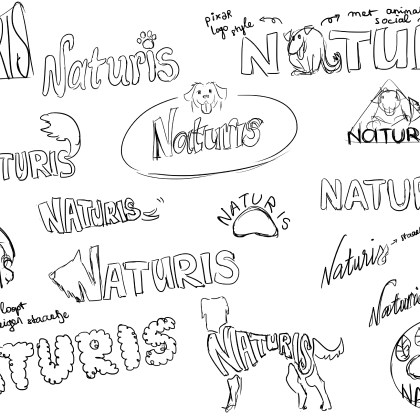 RIS
Naturis
pixar
logo style
met animal
social
NATU
Naturis
NATUR
TURIS
NATURIS
NATURIS
NATUR
NATURIS
Naturis
Naturis
loopt
eigen staartje
TURIS
NATURIS
NA